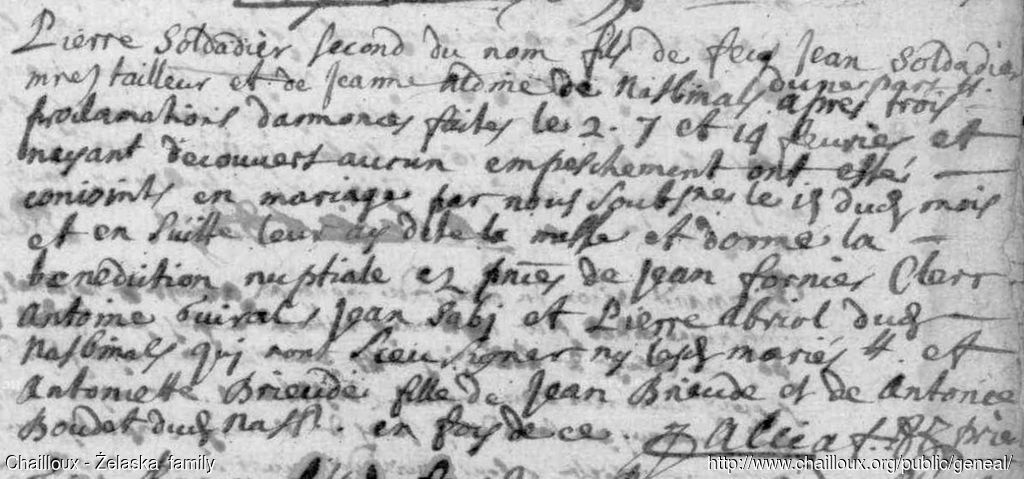 Pierre Soldadier second du nom fils de feu Jean Soldadier
mre tailleur et de Jeanne Aldine de Nasbinals dune part #.
proclamations dannonces faites le 2. 7 et 14 feurier et apres trois
nayant decouvert aucun empeschement ont estés
conioints en mariage par nous soubsnes le 15 dud mois
et en suitte leur ay dite la messe et donne la
benediction nuptiale ez pnces de Jean fornier Clerc
Antoine Guiral, Jean et Pierre Abriol dud
Nasbinals qui nont sceu signer ny lesd mariés #. et
Antoniette Brieude fille de Jean Brieude et de Antonie
Boudet dud Nasb. en foy de ce.
Chailloux - Żelaska family
http://www.chailloux.org/public/geneal/